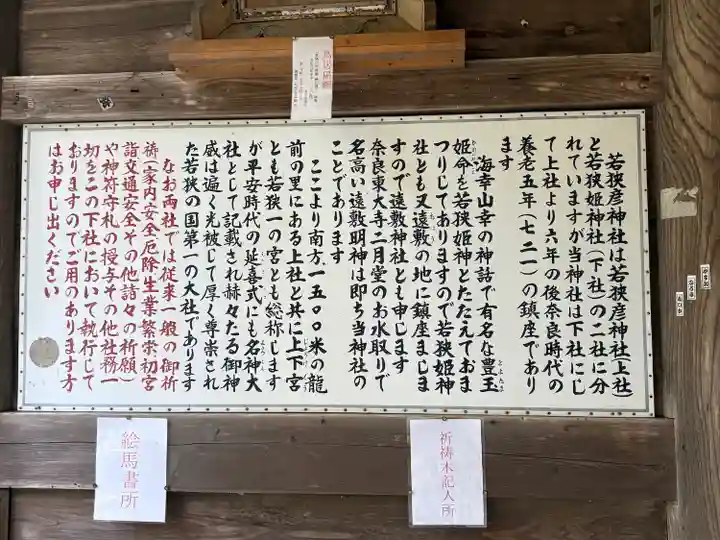 若狭彦神社は若狭彦神社(上社)
と若狭姫神社(下社)の二社に分
れていますが当神社は下社にし
て上社より六年の後奈良時代の
養老五年(七二一)の鎮座であり
ます
海幸山幸の神話で有名な豊玉
姫命を若狭姫神とたたえておま
つりしてありますので若狭姫神
社とも又遠敷の地に鎮座ましま
すので遠敷神社とも申します
奈良東大寺二月堂のお水取りで
名高い遠敷明神は即ち当神社の
ことであります
ここより南方一五〇〇米の龍
前の里にある上社と共に上下宮
とも若狭一の宮とも総称します
が平安時代の延喜式にも名神大
社として記載され赫々たる御神
威は遍く光被して厚く尊崇され
た若狭の国第一の大社であります
なお両社では従来一般の御祈
祷(家内安全厄除生業繁栄初宮
詣交通安全その他諸々の祈願)
や神符守札の授与その他社務一
切をこの下社において執行して
おりますのでご用のあります方
はお申し出ください
祈祷木記入所
絵馬書所